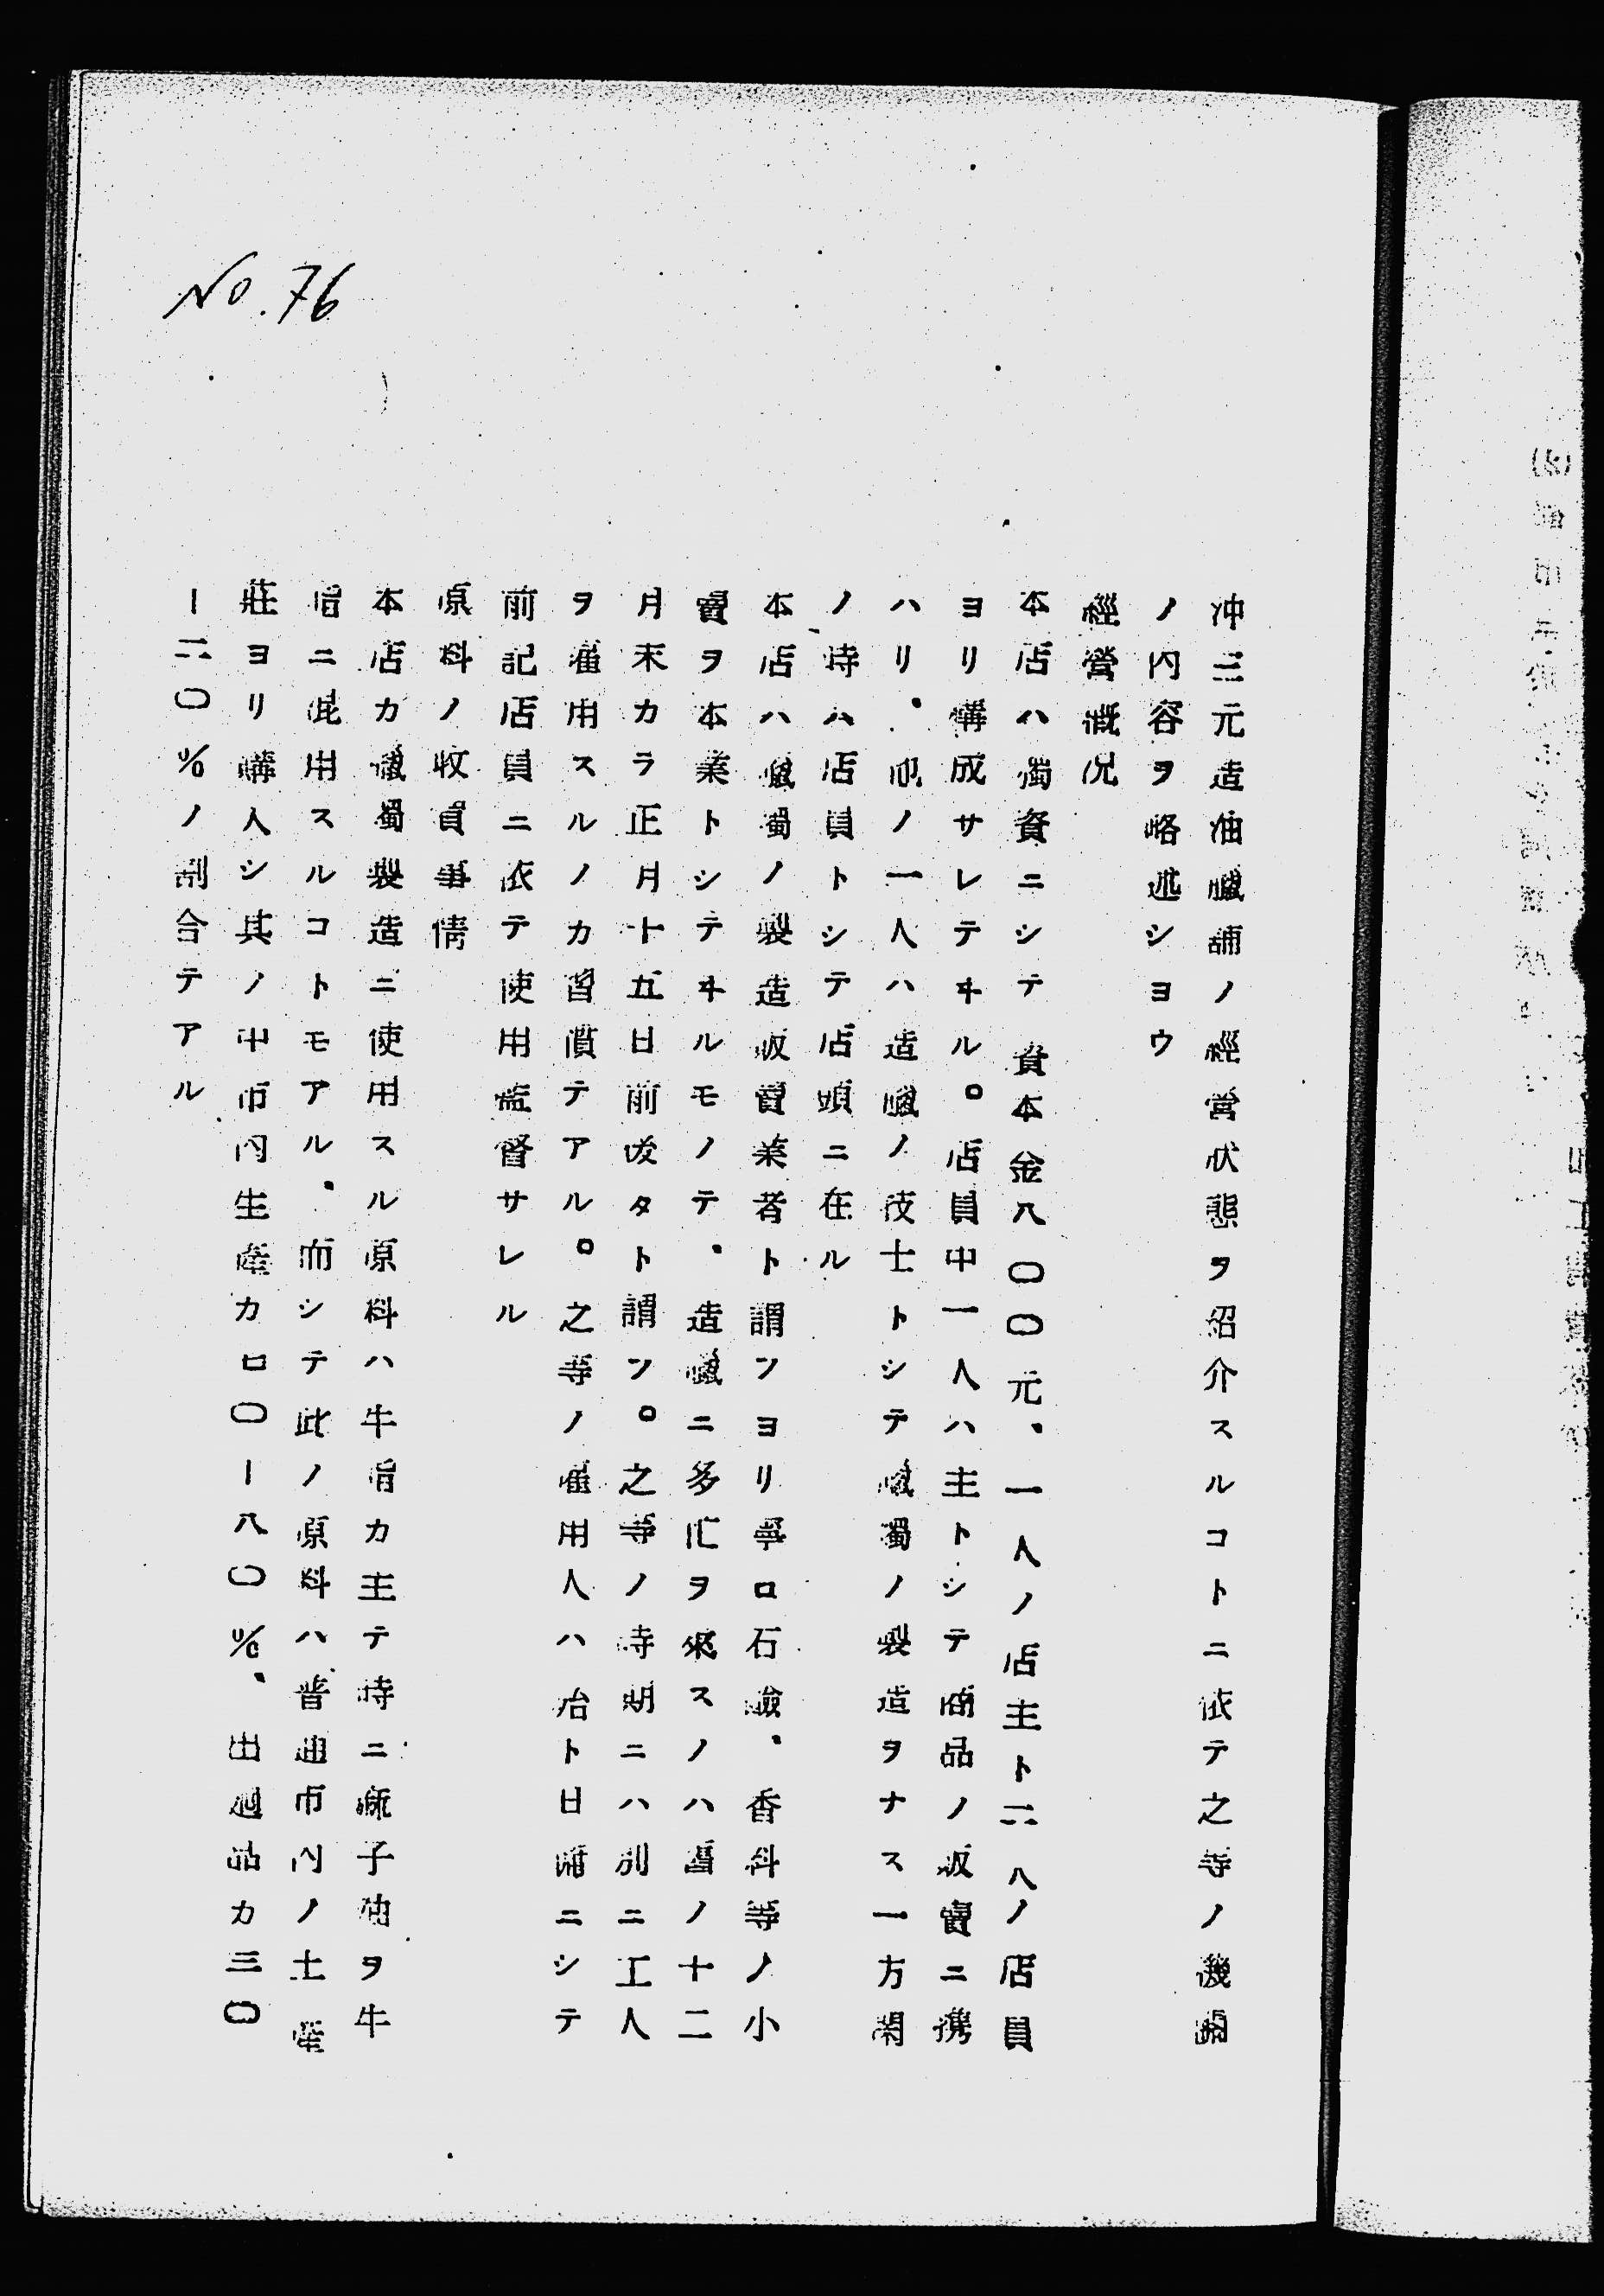 No. 76
沖三元造油蠟舗ノ經營狀態ヲ紹介スルコトニ依テ之等ノ機關
ノ內容ヲ略述シヨウ
經營概况
本店ハ獨資ニシテ資本金八〇〇元、一人ノ店主ト二八ノ店員
ヨリ構成サレテヰル。店員中一人ハ主トシテ商品ノ販賣ニ携
ハリ、他ノ一人ハ造蠟ノ技士トシテ蠟燭ノ製造ヲナス一方閑
ノ時ハ店員トシテ店頭ニ在ル
本店ハ蠟燭ノ製造販賣業者ト謂フヨリ寧ロ石鹼、香料等ノ小
賣ヲ本業トシテヰルモノテ、造蠟ニ多忙ヲ來スノハ舊ノ十二
月末カラ正月十五日前後タト謂フ。之等ノ時期ニハ別ニ工人
ヲ雇用スルノカ習慣テアル。之等ノ雇用人ハ殆ト日傭ニシテ
前記店員ニ依テ使用監督サレル
原料ノ收買事情
本店カ蠟燭製造ニ使用スル原料ハ牛脂カ主テ時ニ蔴子油ヲ牛
脂ニ混用スルコトモアル、而シテ此ノ原料ハ普通市內ノ土產
莊ヨリ購入シ其ノ中市內生產カ七〇ー八〇%、出廻品カ三〇
ー二〇%ノ割合テアル